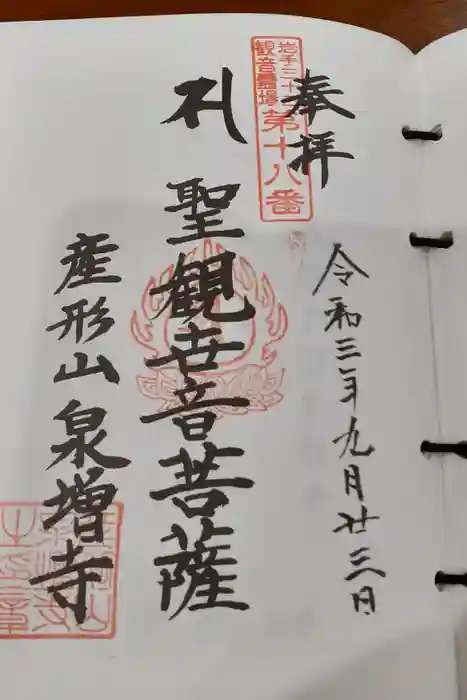 奉拝
岩手三十三
観音霊場
第十八番
令和三年九月廿三日
札
聖観世音菩薩
産形山泉増寺